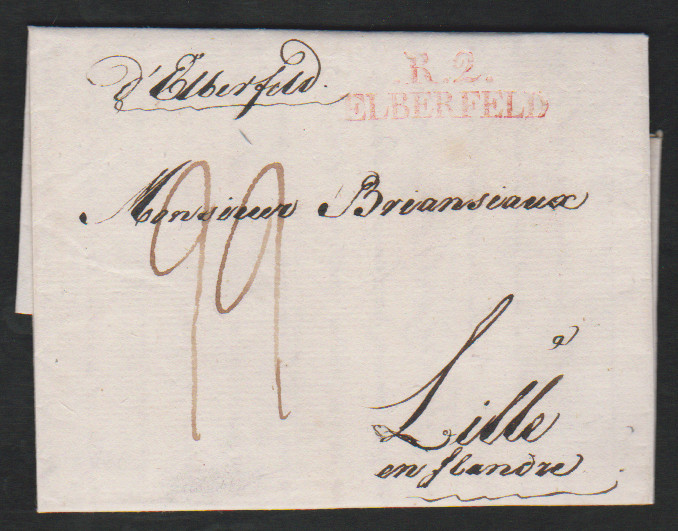 d'Elberfeld.
R. 2.
ELBERFELD
Monsieur Briansiaux
99
à
Lille
en flandre